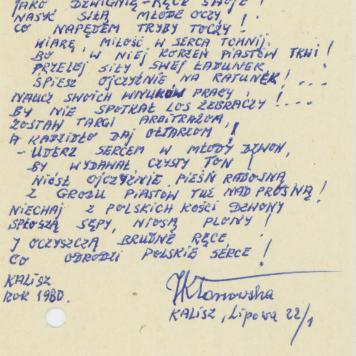 JAKO DŹWIGNIĘ - RĘCE SWOJE!
NASYĆ SIŁĄ MŁODE OCZY!
CO NAPĘDEM TRYBY TOCZY!
WIARĘ, MIŁOŚĆ W SERCA TCHNIJ.
BO W NIEJ KORZEŃ PIASTÓW TKWI!
PRZELEJ SIŁY SWEJ ŁADUNEK
ŚPIESZ OJCZYŹNIE NA RATUNEK!...
NAUCZ SWOICH WNUKÓW PRACY!
BY NIE SPOTKAŁ LOS ŻEBRACZY!...
ZOSTAW TARGI ARBITRAŻOM,
A KADZIDŁO DAJ OŁTARZOM!
- UDERZ SERCEM W MŁODY DZWON,
BY WYDAWAŁ CZYSTY TON!
NIÓSŁ OJCZYŹNIE PIEŚŃ RADOSNĄ
Z GROBU PIASTÓW TUŻ NAD PROSNĄ!
NIECHAJ Z POLSKICH KOŚCI DZWONY
SPŁOSZĄ SĘPY, NIOSĄ PLONY!
I OCZYSZCZĄ BRUDNE RĘCE
CO ODRODZI POLSKIE SERCE!
KALISZ
ROK 1980.
HKłanowska
KALISZ, Lipowa 22/1